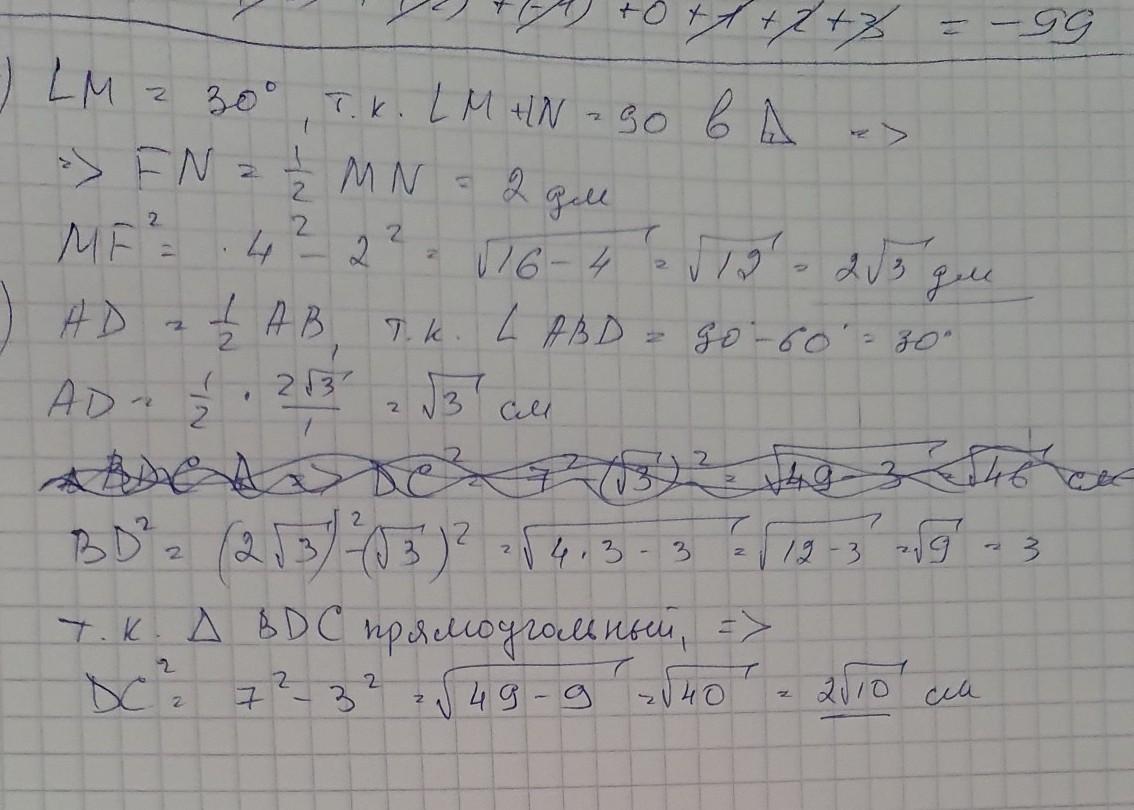 + (-1) + 0 + 1 + 2 + 3 = -99
) ∠M = 30°, т.к. ∠M + ∠N = 90 в Δ =>
=> FN = 1/2 MN = 2 дм
MF² = · 4² - 2² = √16 - 4 = √12 = 2√3 дм
) AD = 1/2 AB, т.к. ∠ ABD = 90° - 60° = 30°
AD = 1/2 · 2√3/1 = √3 см
BDC Δ => DC² = 7² - (√3)² = √49 - 3 = √46 см
BD² = (2√3)² - (√3)² = √4·3 - 3 = √12 - 3 = √9 = 3
т.к. Δ BDC прямоугольный, =>
DC² = 7² - 3² = √49 - 9 = √40 = 2√10 см